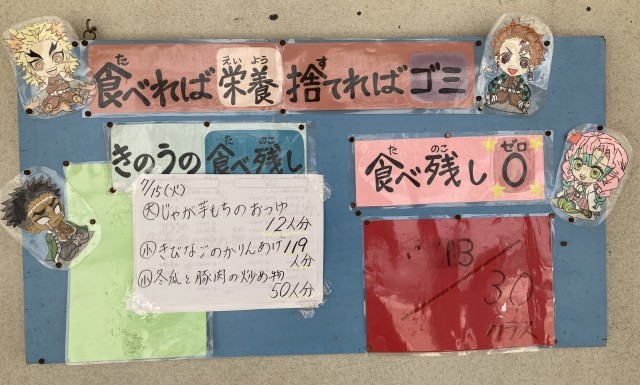 食べれば栄養 捨てればゴミ
きのうの食べ残し
7/15(火)
大じゃが芋もちのおつゆ
12人分
小きびなごのかりんあげ119
人分
小冬瓜と豚肉の炒め物
50人分
食べ残し0
13
30
クラス